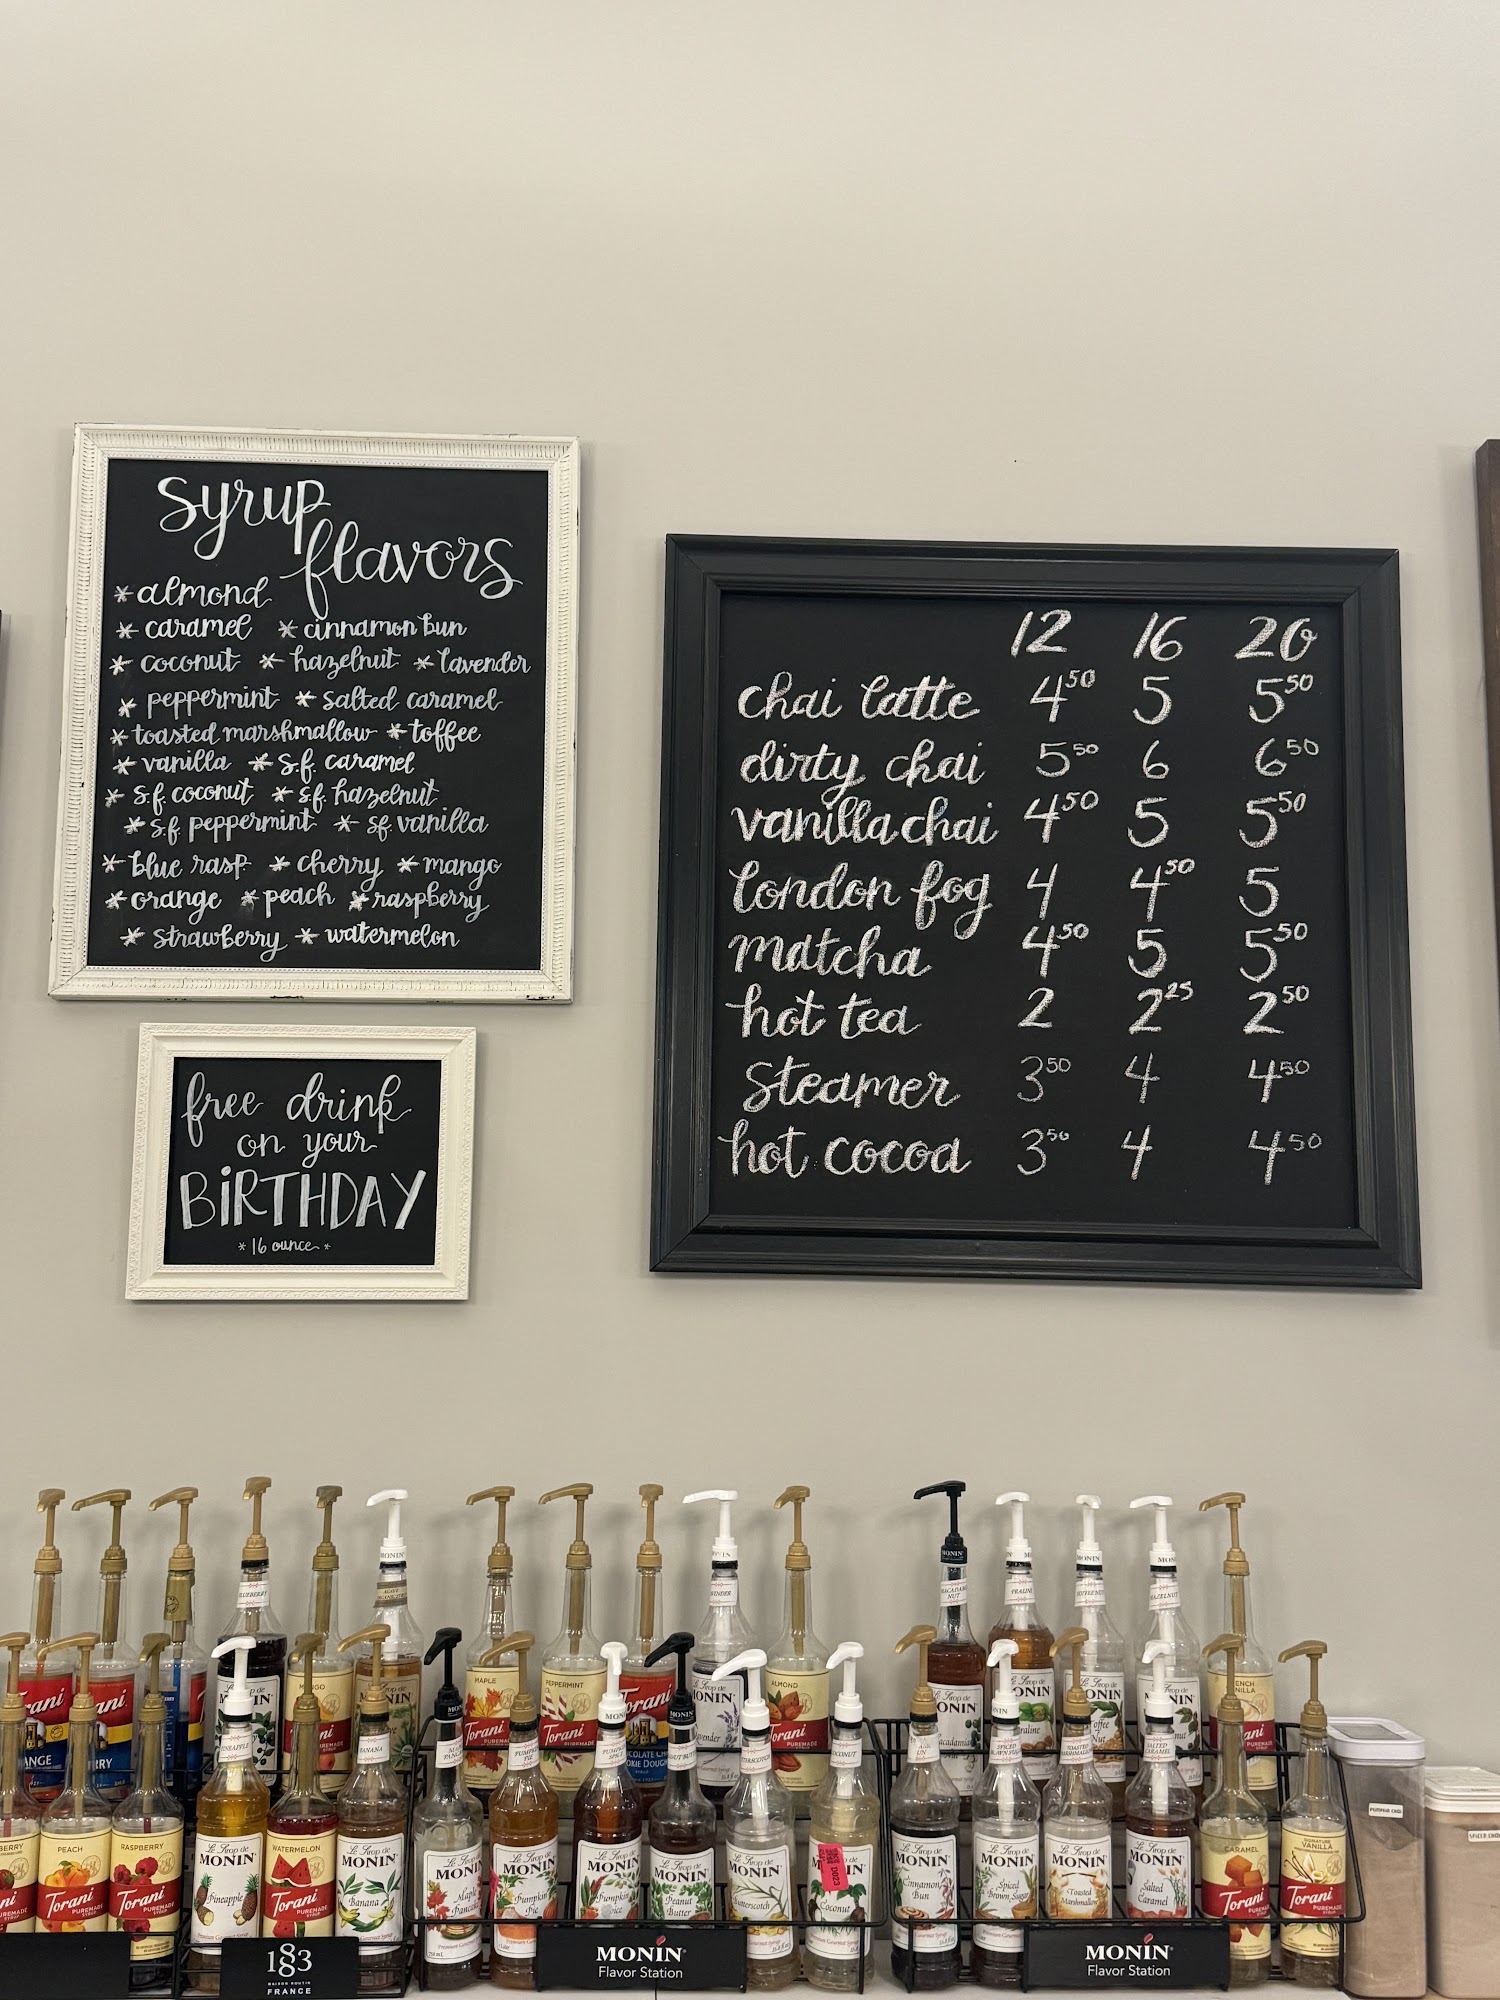 syrup
flavors
* almond
* caramel * cinnamon bun
* coconut * hazelnut * lavender
* peppermint * salted caramel
* toasted marshmallow * toffee
* vanilla * s.f. caramel
* s.f. coconut * s.f. hazelnut
* s.f. peppermint * s.f. vanilla
* blue rasp. * cherry * mango
* orange * peach * raspberry
* strawberry * watermelon
free drink
on your
BIRTHDAY
* 16 ounce *
12 16 20
chai latte 4 50 5 5 50
dirty chai 5 50 6 6 50
vanilla chai 4 50 5 5 50
london fog 4 4 50 5
matcha 4 50 5 5 50
hot tea 2 2 25 2 50
steamer 3 50 4 4 50
hot cocoa 3 50 4 4 50
MAPLE
Torani
PEPPERMINT
Torani
Torani
ALMOND
Torani
PEACH
Torani
RASPBERRY
Torani
Le Sirop de
MONIN
Pineapple
WATERMELON
Torani
Le Sirop de
MONIN
Banana
Le Sirop de
MONIN
Peanut
Butter
MONIN
Coconut
Le Sirop de
MONIN
Cinnamon
Bun
Le Sirop de
MONIN
Spiced
Brown Sugar
Le Sirop de
MONIN
Toasted
Marshmallow
Le Sirop de
MONIN
Salted
Caramel
CARAMEL
Torani
SIGNATURE
VANILLA
Torani
1883
MAISON ROUTIN
FRANCE
MONIN
Flavor Station
MONIN
Flavor Station